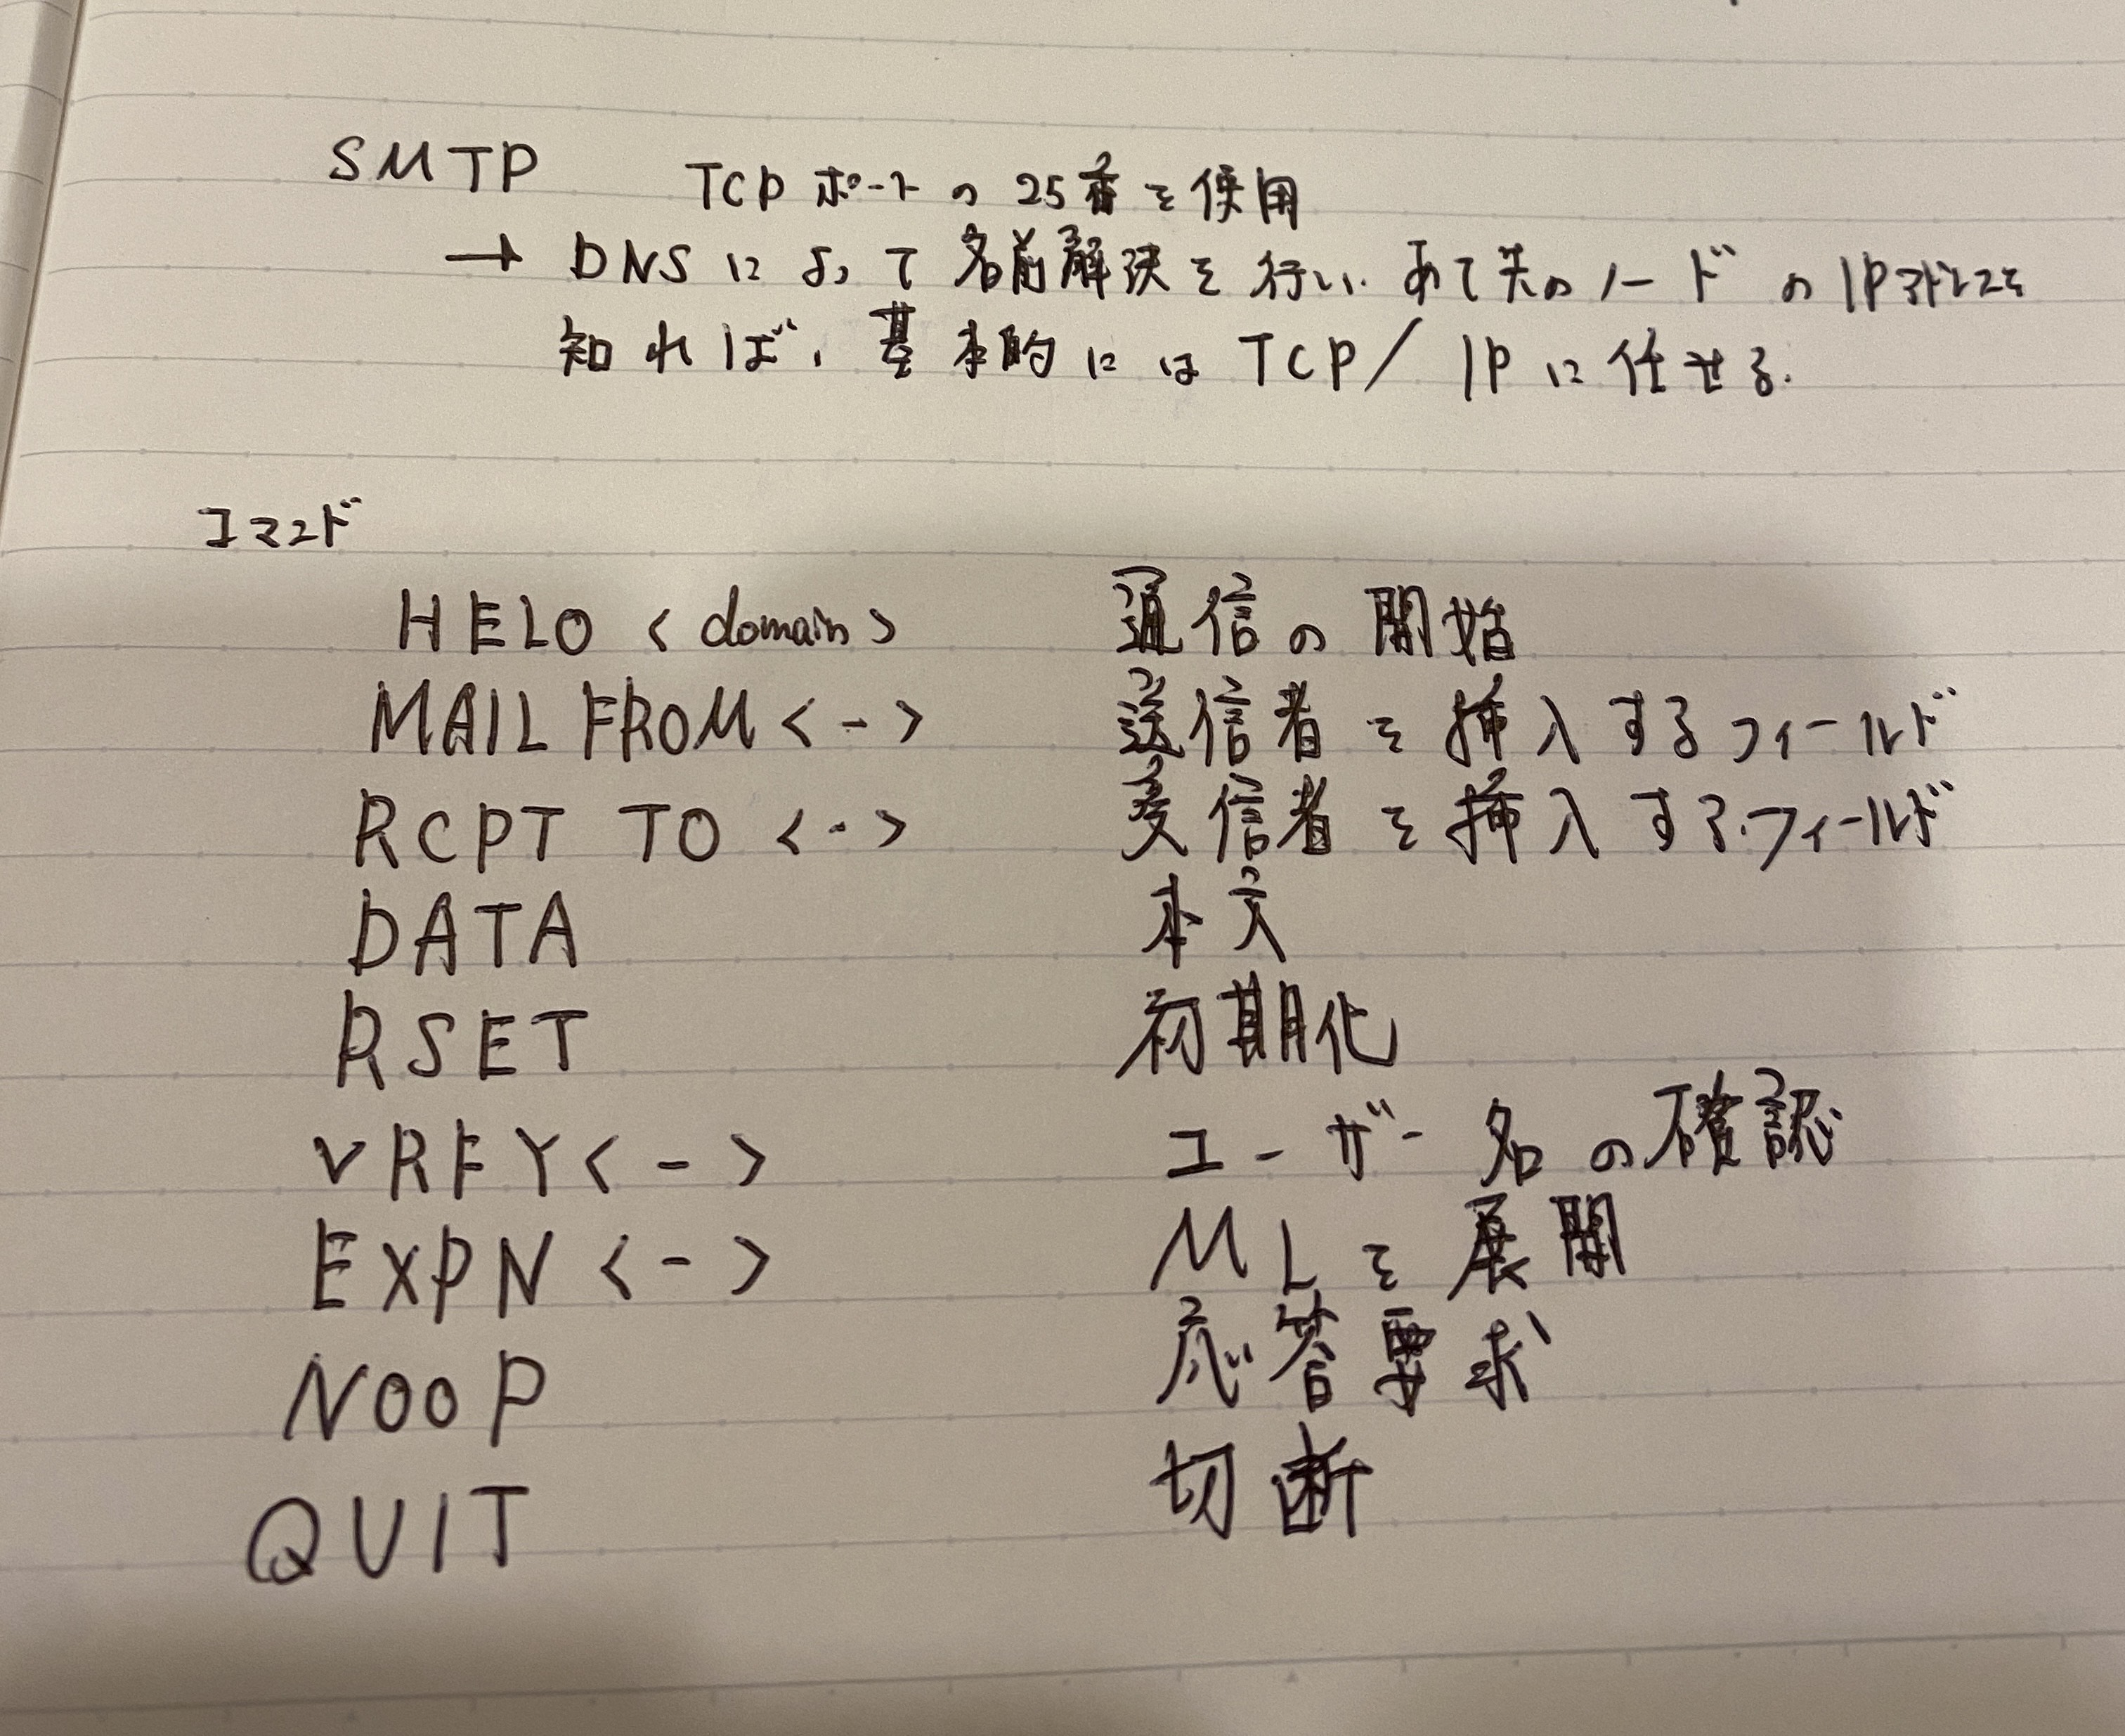 SMTP TCPポートの25番を使用
→ DNSによって名前解決を行い、あて先のノードのIPアドレスを
知れば、基本的にはTCP/IPに任せる.
コマンド
HELO <domain> 通信の開始
MAIL FROM <-> 送信者を挿入するフィールド
RCPT TO <-> 受信者を挿入するフィールド
DATA 本文
RSET 初期化
VRFY <-> ユーザー名の確認
EXPN <-> MLを展開
NOOP 応答要求
QUIT 切断